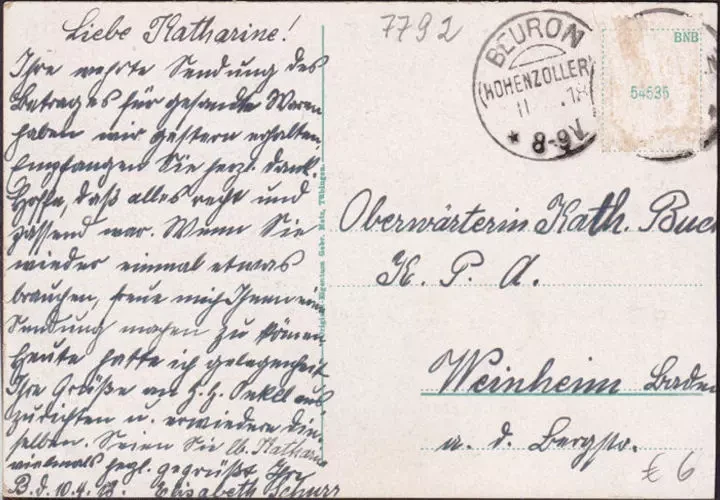 Liebe Katharine!
Ihre werte Sendung des
Betrages für gesandte Waren
haben wir gestern erhalten,
Empfangen Sie herzl. Dank.
Hoffe, daß alles recht und
passend war. Wenn Sie
wieder einmal etwas
brauchen, freue mich Ihnen eine
Sendung machen zu können
Heute hatte ich gelegenheit
Ihre Grüße an h. h. Onkel aus
zurichten u. erwiedere die-
selben. Seien Sie lb. Katharina
vielmals herzl. gegrüßt Ihre
B. d. 10.4.18. Elisabeth Schurr
Original-Eigentum Gebr. Metz, Tübingen.
7792
BEURON
(HOHENZOLLER)
11 .18
* 8-9V.
BNB
54535
Oberwärterin Kath. Buch
K. P. A.
Weinheim Baden
a. d. Bergstr.
£ 6